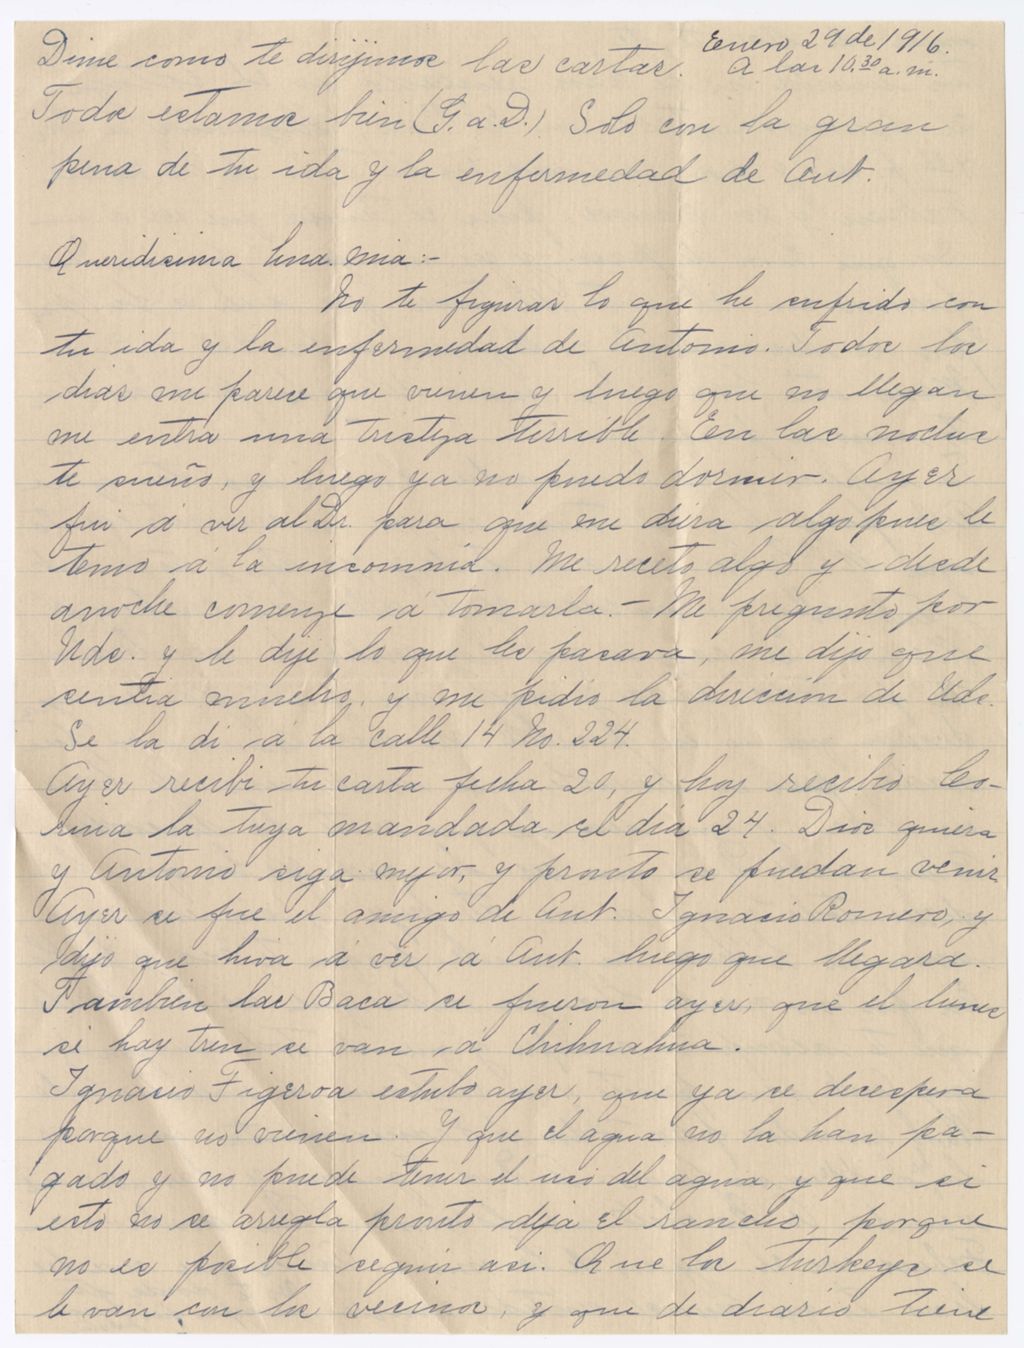 Enero 29 de 1916.
A las 10.30 a. m.
Dime como te dirijimos las cartas.
Todos estamos bien (G. a. D.) Solo con la gran
pena de tu ida y la enfermedad de Ant.
Queridisima hna. mia:-
No te figuras lo que he sufrido con
tu ida y la enfermedad de Antonio. Todos los
dias me parece que vienen y luego que no llegan
me entra una tristeza terrible. En las noches
te sueño, y luego ya no puedo dormir. Ayer
fui á ver al Dr. para que me diera algo pues le
temo á la insomnia. Me receto algo y desde
anoche comenze á tomarla.- Me pregunto por
Uds. y le dije lo que les pasava, me dijo que
sentia mucho, y me pidio la direccion de Uds.
Se la di á la calle 14 No. 224.
Ayer recibi tu carta fecha 20, y hoy recibio Les-
rina la tuya mandada el dia 24. Dios quiera
y Antonio siga mejor, y pronto se puedan venir
Ayer se fue el amigo de Ant. Ignacio Romero, y
dijo que hiva á ver á Ant. luego que llegara.
Tambien las Baca se fueron ayer, que el lunes
si hay tren se van á Chihuahua.
Ignacio Figeroa estubo ayer, que ya se desespera
porque no vienen. Y que el agua no la han pa-
gado y no puede tener el uso del agua, y que si
esto no se arregla pronto deja el rancho, porque
no es posible seguir asi. Que los turkeys se
le van con los vecinos, y que de diario tiene